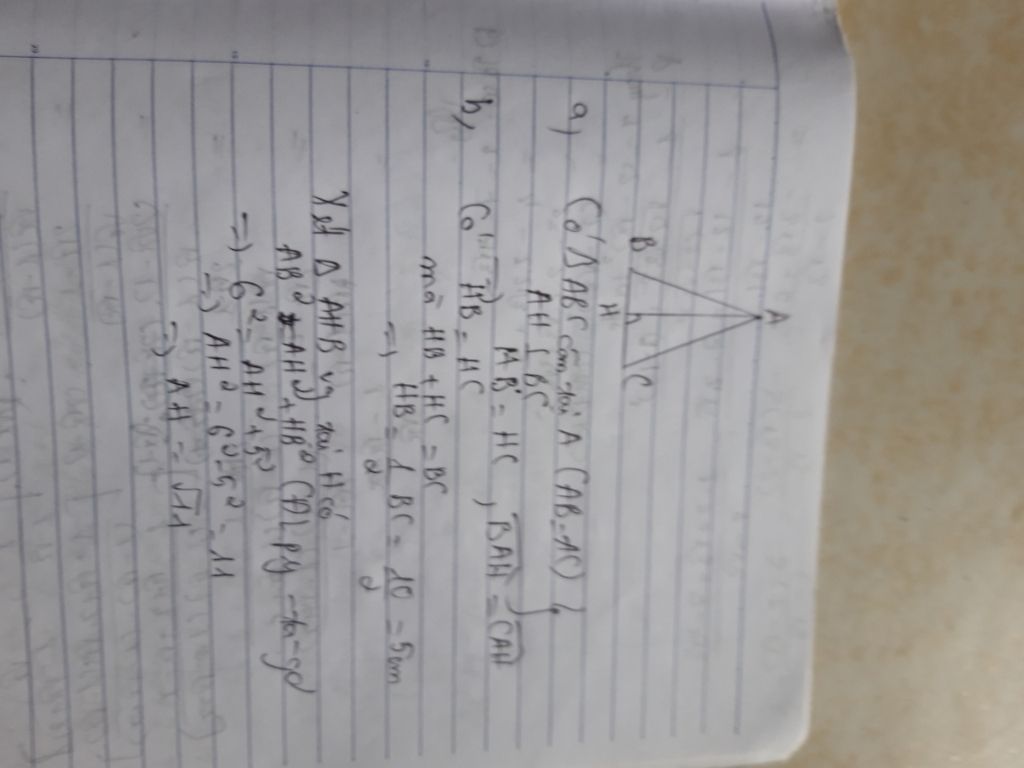 A
B
H
C
a, Có Δ ABC cân tại A (AB=AC)
AH ⊥ BC
=> HB = HC, BAH = CAH
b, Có HB = HC
mà HB + HC = BC
=> HB = 1/2 BC = 10/2 = 5cm
Xét Δ AHB vg tại H có
AB² = AH² + HB² (ĐL py-ta-go)
=> 6² = AH² + 5²
=> AH² = 6² - 5² = 11
=> AH = √11